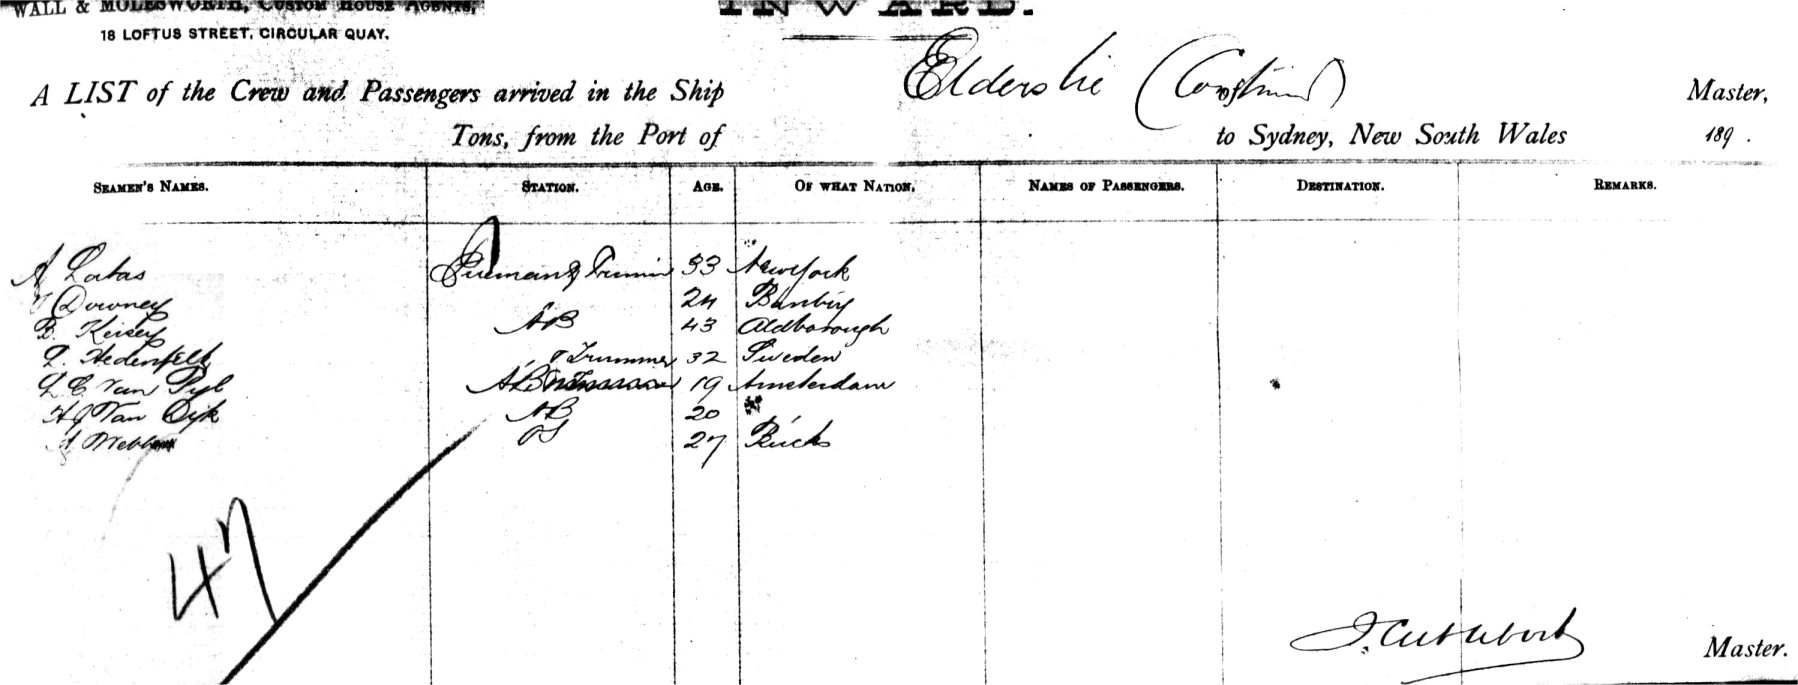 WALL & MOLESWORTH, CUSTOM HOUSE AGENTS,
18 LOFTUS STREET, CIRCULAR QUAY.
INWARD.
A LIST of the Crew and Passengers arrived in the Ship Elderslie (Continued) Master,
Tons, from the Port of to Sydney, New South Wales 189 .
SEAMEN'S NAMES. STATION. AGE. OF WHAT NATION. NAMES OF PASSENGERS. DESTINATION. REMARKS.
A Fireman & 33 New York
Downey 24
B. Keisey AB 43 Aldborough
Hedenfelt Trimmer 32 Sweden
Van AB 19 Amsterdam
Van Dyk AB 20 "
A Webb OS 27 Bucks
47
J. Cuthbert Master.